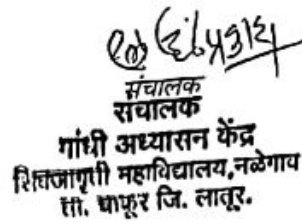 संचालक
संचालक
गांधी अध्यासन केंद्र
शिवजागृती महाविद्यालय,नळेगाव
ता. चाकूर जि. लातूर.